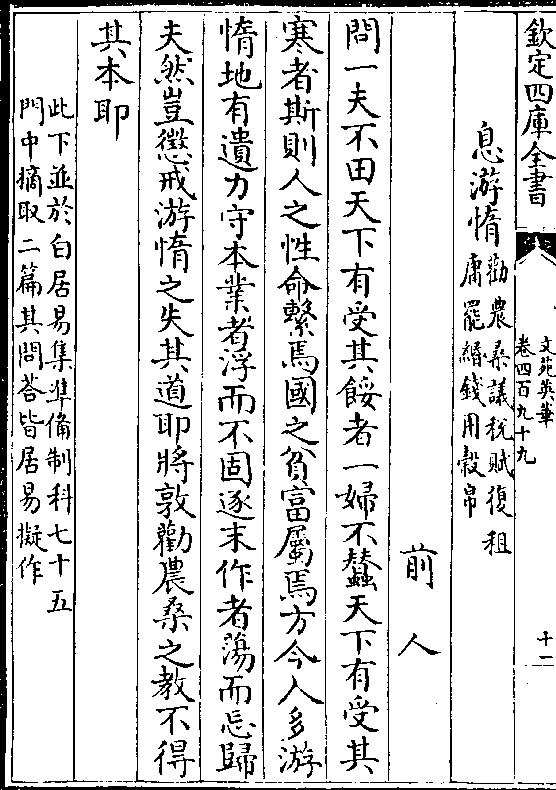 欽定四庫全書
文苑英華
卷四百九十九
十二
息游惰勸農桑議稅賦復租
庸罷緡錢用穀帛
前人
問一夫不田天下有受其餒者一婦不蠶天下有受其
寒者斯則人之性命繫焉國之貧富屬焉方今人多游
惰地有遺力守本業者浮而不固逐末作者蕩而忘歸
夫然豈懲戒游惰之失其道耶將敦勸農桑之教不得
其本耶
此下並於白居易集凖備制科七十五
門中摘取二篇其問荅皆居易擬作